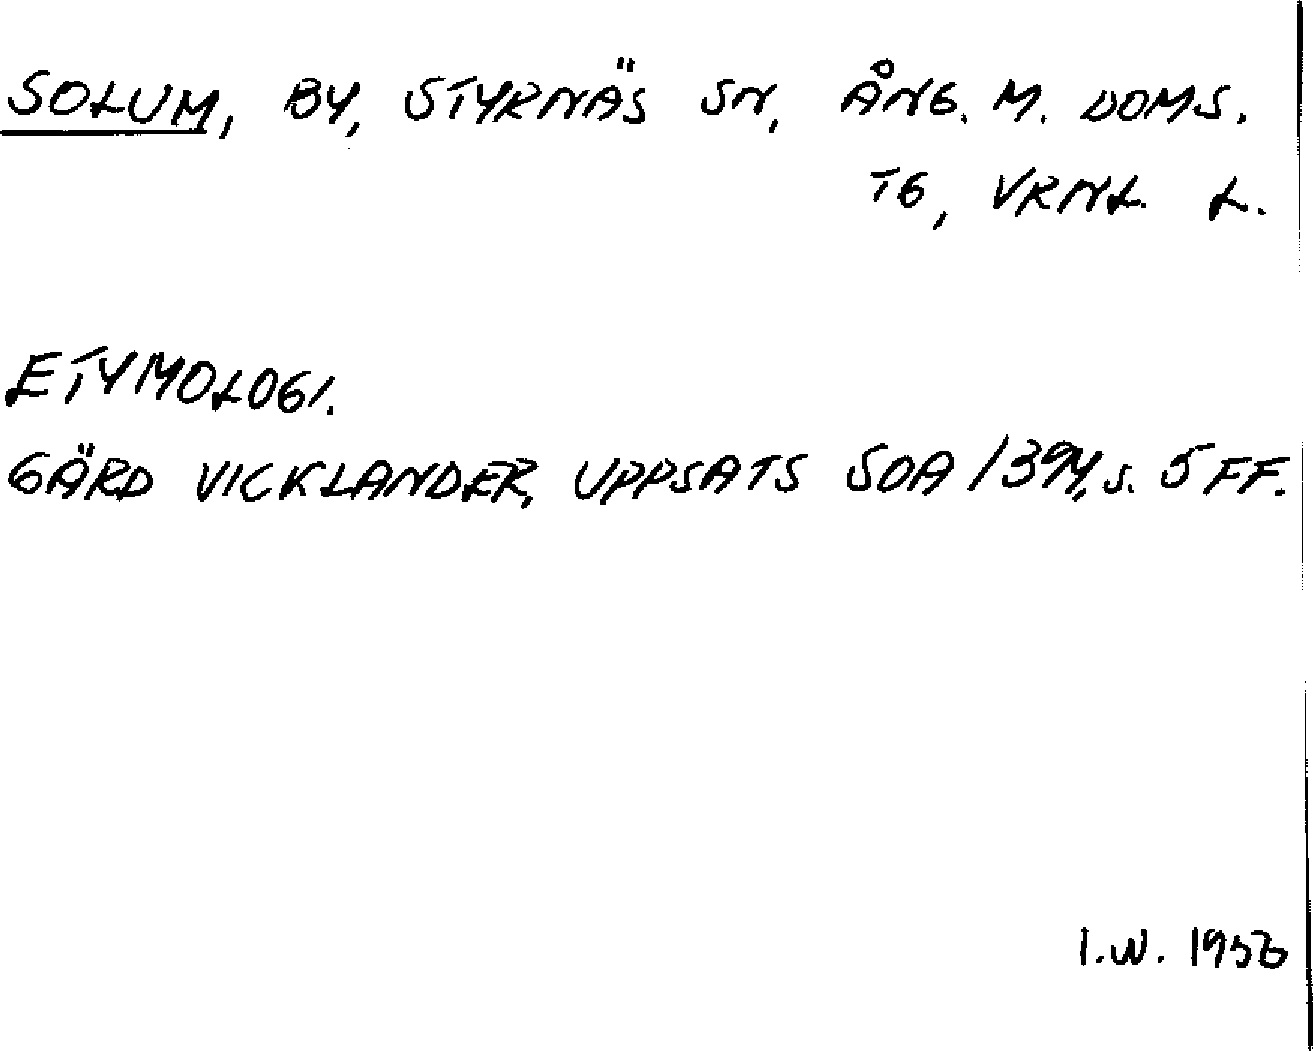 SOLUM, BY, STYRNÄS SN, ÅNG. M. DOMS.
TG, VRNL. L.
ETYMOLOGI.
GÄRD VICKLANDER, UPPSATS SOA 1394, S. 5 FF.
I.W. 1956